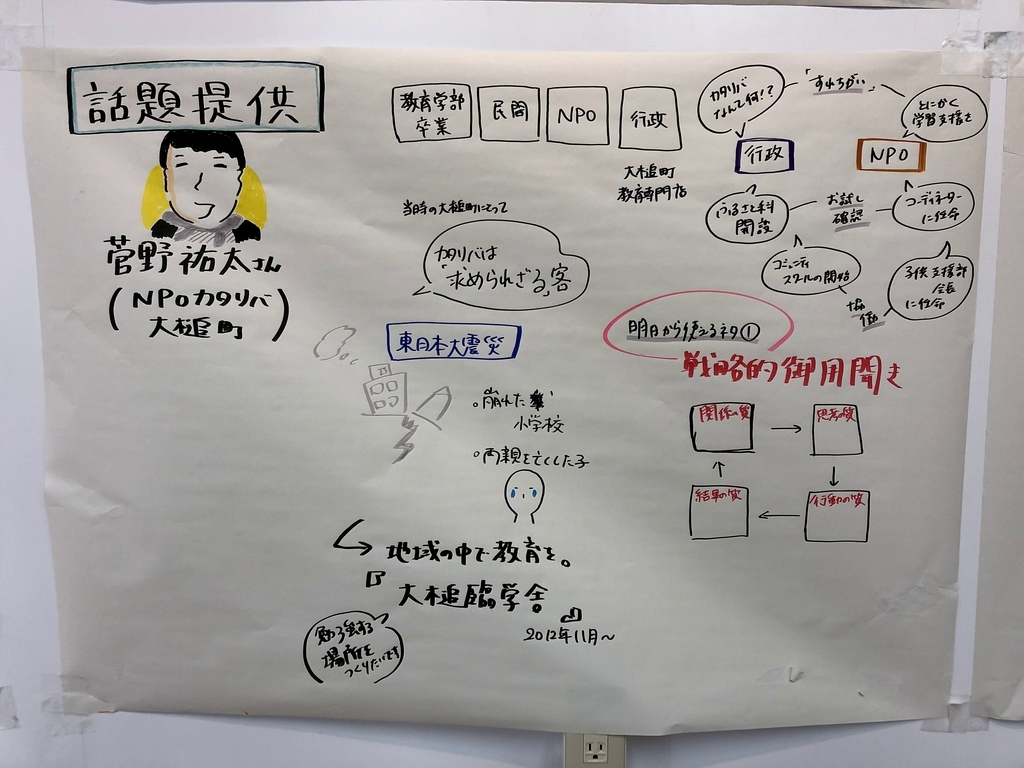 話題提供
菅野祐太さん
(NPOカタリバ
大槌町)
教育学部
卒業
民間
NPO
行政
大槌町
教育専門店
当時の大槌町にとって
カタリバは
「求められざる」客
東日本大震災
崩れた
小学校
両親を亡くした子
地域の中で教育を。
大槌臨学舎。
2012年11月〜
勉強する
場所を
つくりたいです
カタリバ
なんて何!?
「すれちがい」
とにかく
学習支援を
行政
NPO
ふるさと科
開設
お試し
確認
コーディネーター
に任命
コミュニティ
スクールの開始
協働
子供支援部
会長
に任命
明日から使えるネタ①
戦略的御用聞き
関係の質
思考の質
結果の質
行動の質